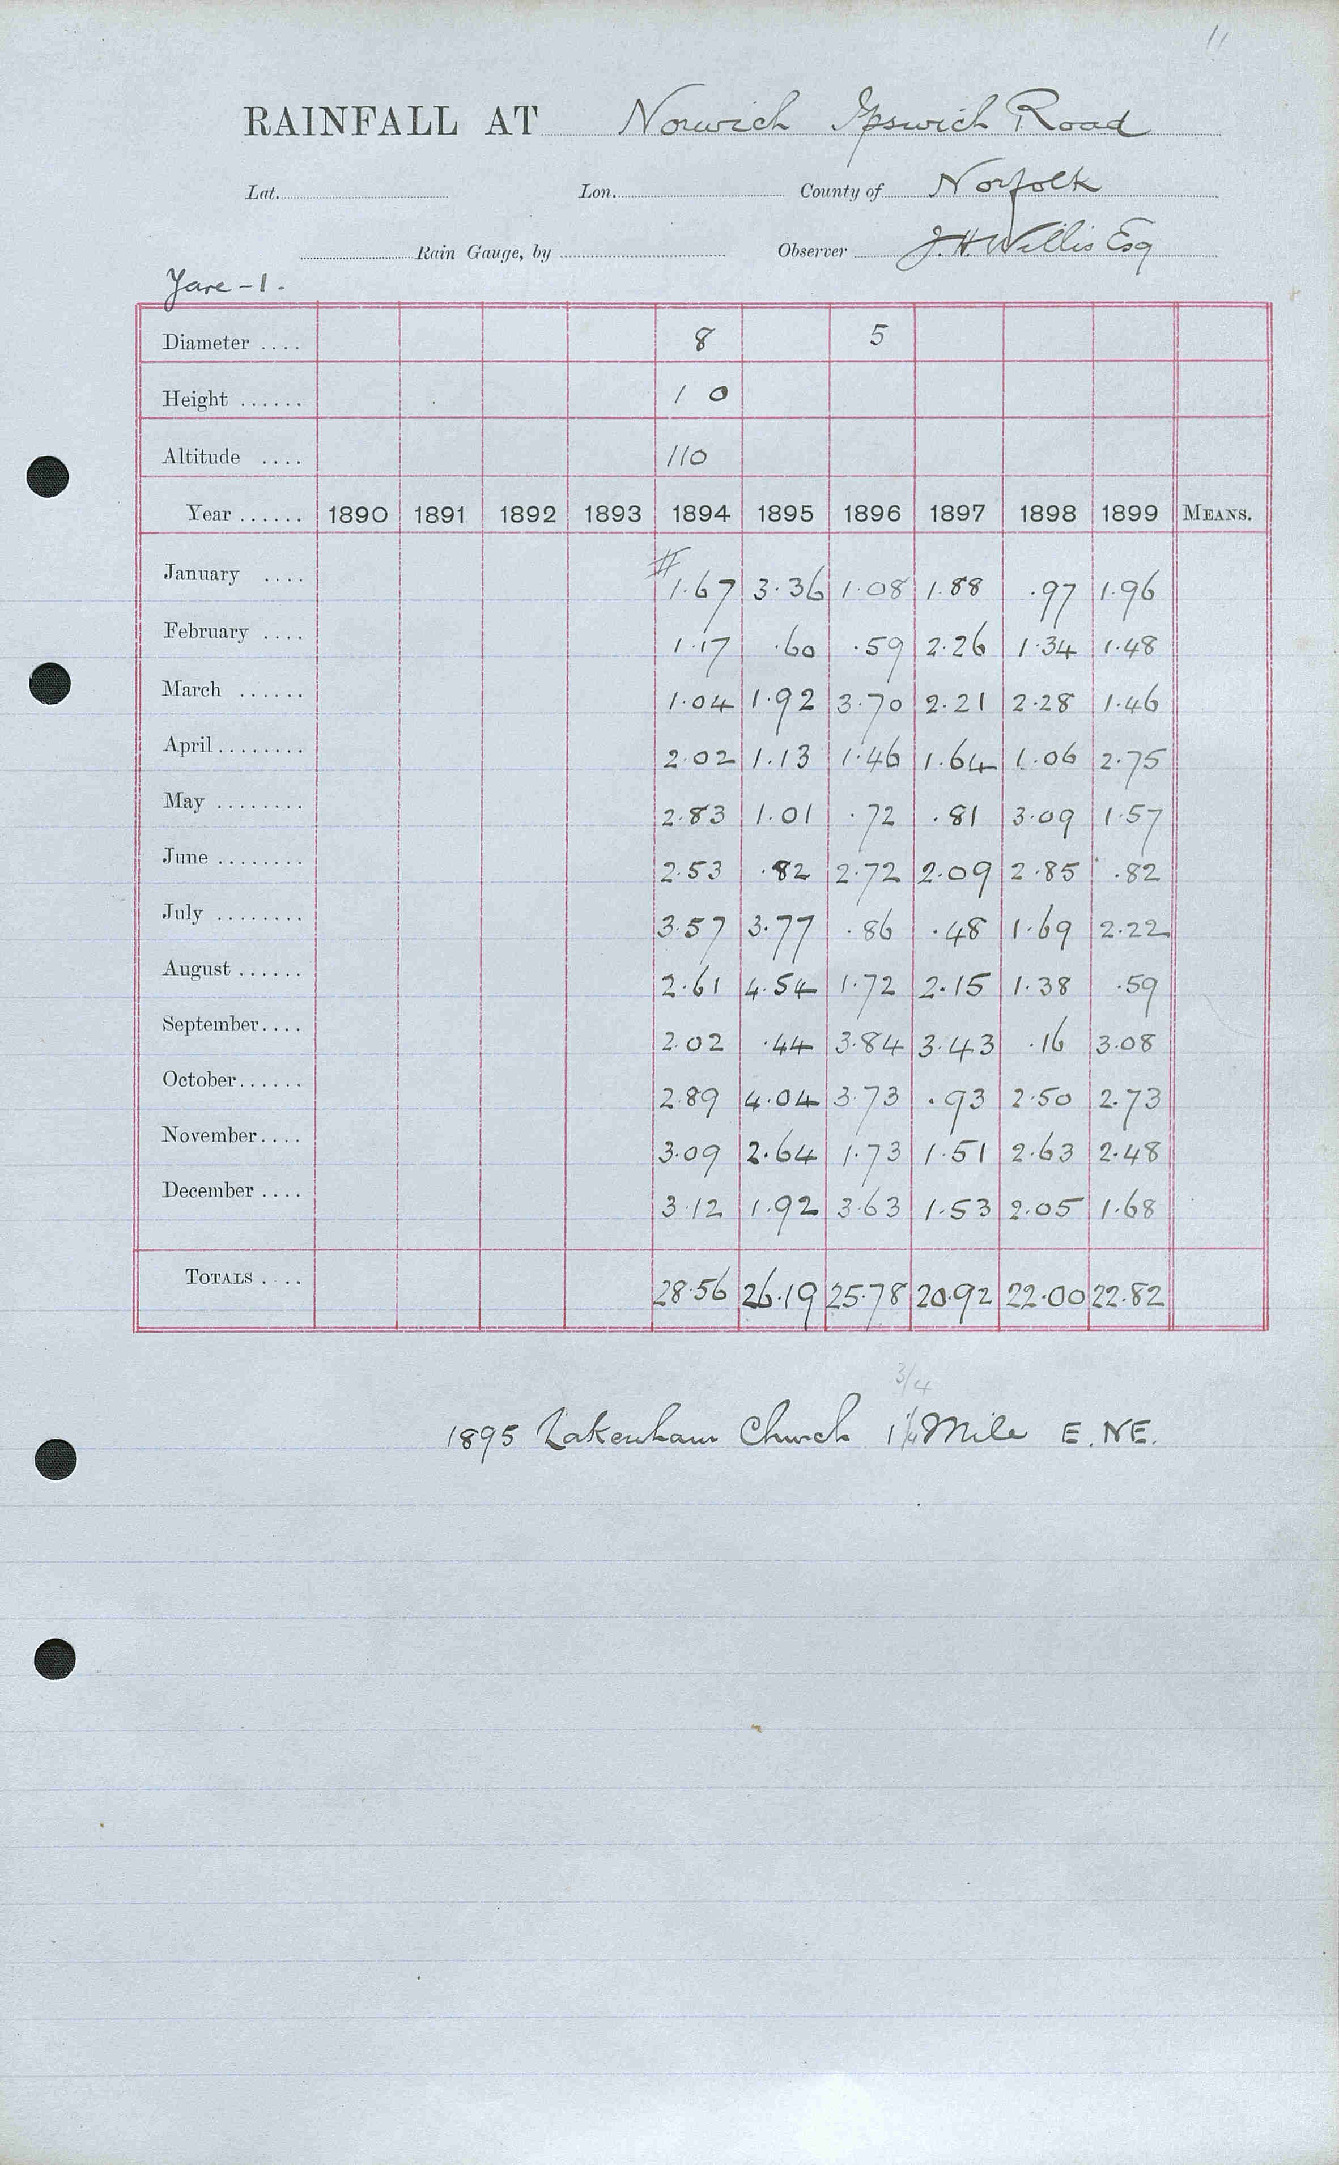 11
RAINFALL AT Norwich Ipswich Road
Lat. Lon. County of Norfolk
Rain Gauge, by Observer J. H. Willis Esq
Yare - 1.
Diameter .... 8 5
Height ...... 1 0
Altitude .... 110
Year ...... 1890 1891 1892 1893 1894 1895 1896 1897 1898 1899 MEANS.
January .... # 1.67 3.36 1.08 1.88 .97 1.96
February .... 1.17 .60 .59 2.26 1.34 1.48
March ...... 1.04 1.92 3.70 2.21 2.28 1.46
April ........ 2.02 1.13 1.46 1.64 1.06 2.75
May ........ 2.83 1.01 .72 .81 3.09 1.57
June ........ 2.53 .82 2.72 2.09 2.85 .82
July ........ 3.57 3.77 .86 .48 1.69 2.22
August ...... 2.61 4.54 1.72 2.15 1.38 .59
September .... 2.02 .44 3.84 3.43 .16 3.08
October ...... 2.89 4.04 3.73 .93 2.50 2.73
November .... 3.09 2.64 1.73 1.51 2.63 2.48
December .... 3.12 1.92 3.63 1.53 2.05 1.68
TOTALS .... 28.56 26.19 25.78 20.92 22.00 22.82
3/4
1895 Lakenham Church 1 1/4 Mile E. NE.